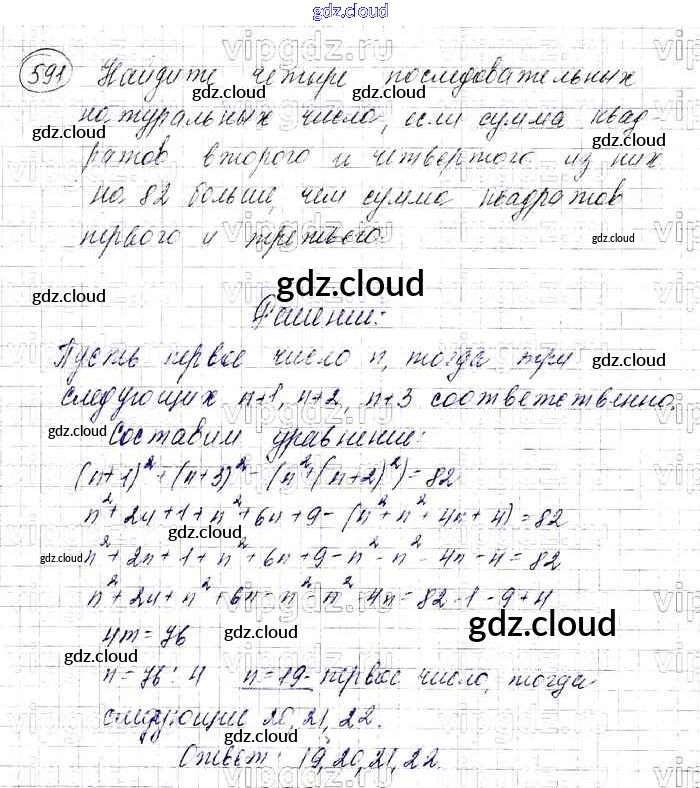 gdz.cloud
591 Найдите четыре последовательных
натуральных числа, если сумма квад-
ратов второго и четвертого из них
на 82 больше, чем сумма квадратов
первого и третьего.
gdz.cloud
Решение:
Пусть первое число n, тогда три
следующих n+1, n+2, n+3 соответственно.
Составим уравнение:
(n+1)²+(n+3)²-(n²+(n+2)²)=82
n²+2n+1+n²+6n+9-(n²+n²+4n+4)=82
n²+2n+1+n²+6n+9-n²-n²-4n-4=82
n²+2n+n²+6n-n²-n²-4n=82-1-9+4
gdz.cloud
4n=76
n=76:4 n=19- первое число, тогда
следующие 20,21,22.
Ответ: 19,20,21,22.